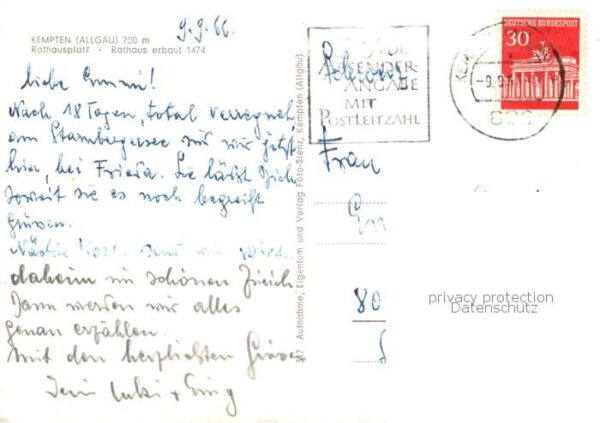 9.9.66.
KEMPTEN (ALLGÄU) 700 m
Rathausplatz · Rathaus erbaut 1474
liebe Emmi!
Nach 18 Tagen, total verregnet,
am Starnbergersee sind wir jetzt
hier, bei Frieda. Sie lässt Dich
soweit sie es noch begreift
grüssen.
Nächste Woche sind wir wieder
daheim im schönen Zürich.
Dann werden wir alles
genau erzählen.
Mit den herzlichsten Grüssen
Aufnahme, Eigentum und Verlag Foto-Sienz, Kempten (Allgäu)
ABSENDER-
ANGABE
MIT
POSTLEITZAHL
DEUTSCHE BUNDESPOST
30
KEM
-9.9.6
Frau
80
privacy protection
Datenschutz